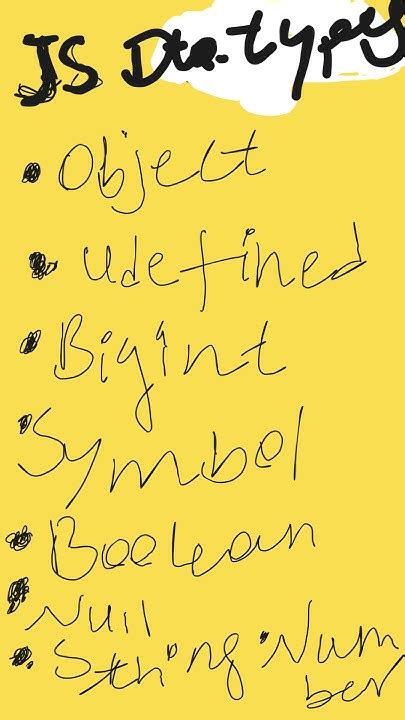 JS Dta-types
Object
Udefined
Bigint
Symbol
Boolean
Null
String Number